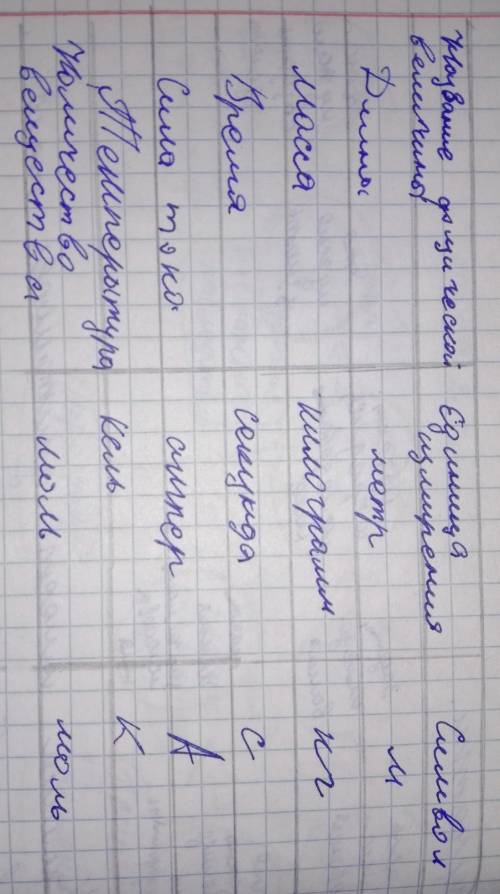 Название физической Единица Символ
величины измирения
Длины метр м
Масса килограмм кг
Время секунда с
Сила тока ампер А
Температура кель К
Количество моль моль
вещества